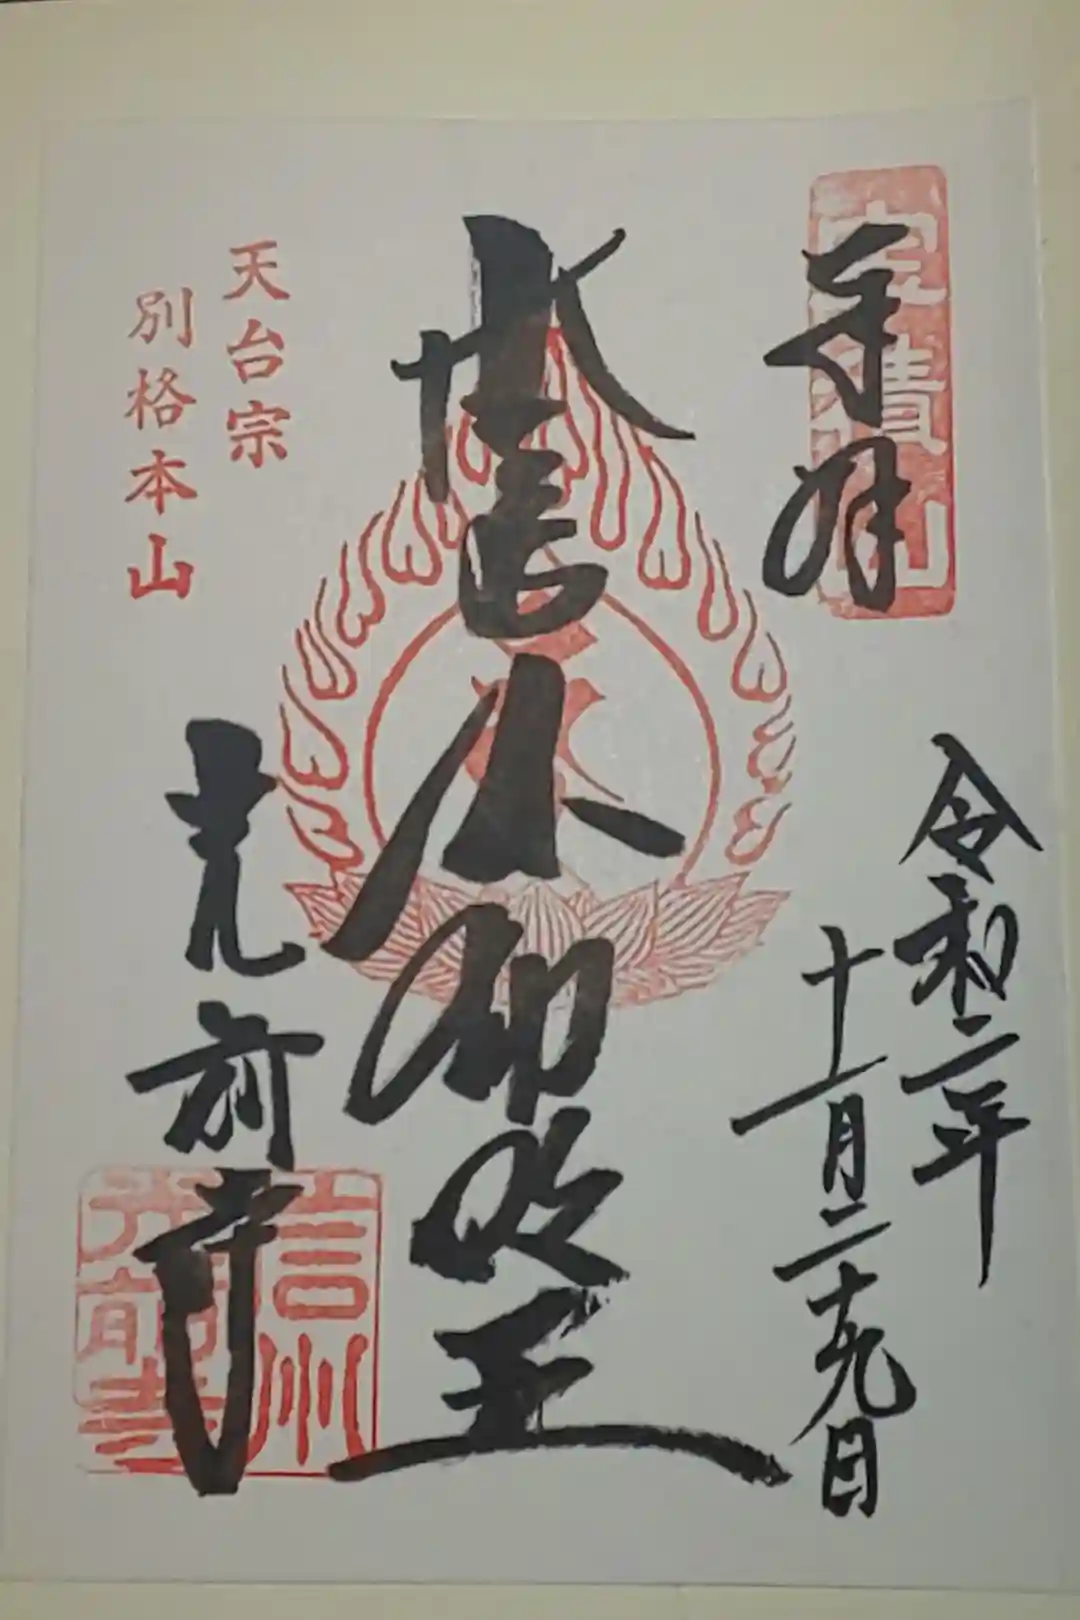 奉拝
宝積山
令和二年
十一月二十九日
不動明王
天台宗
別格本山
光前寺
信州
光前寺